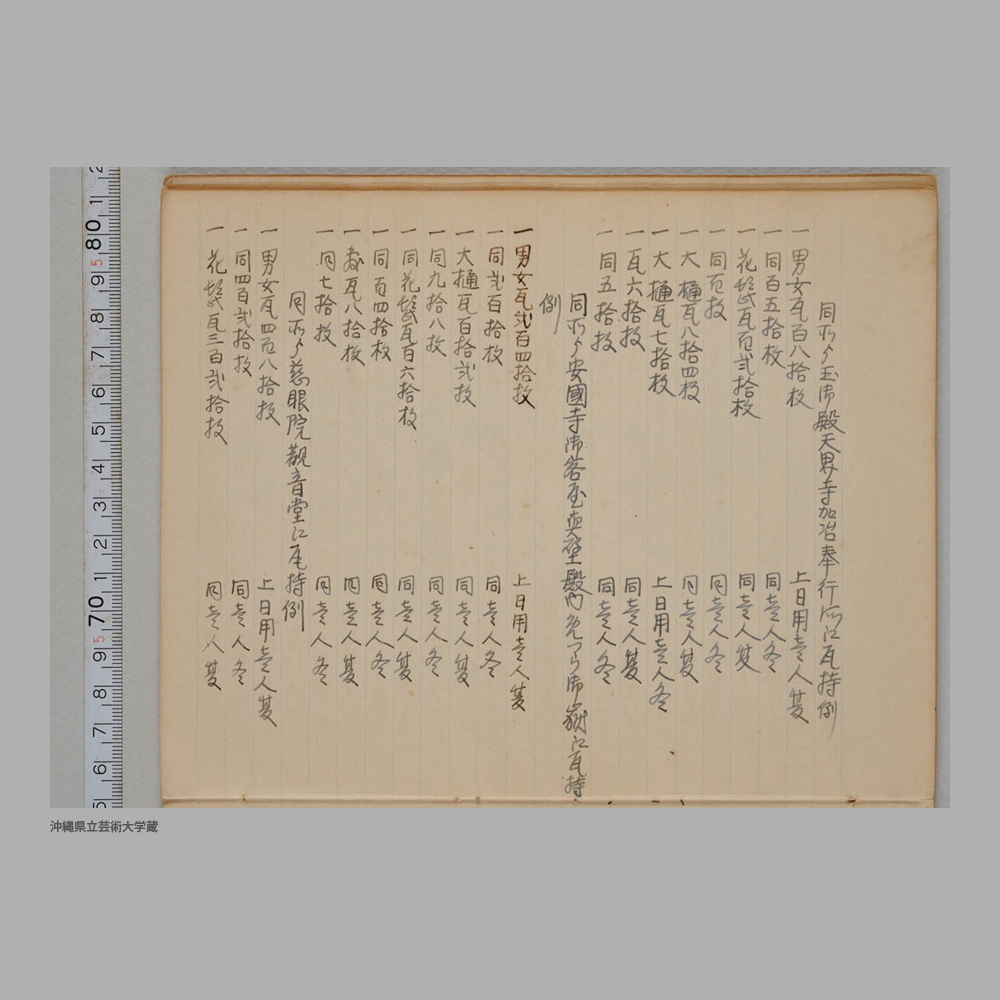 同所ゟ玉御殿天界寺加冶奉行所江瓦持例
一 男女瓦百八拾枚 上日用壱人夏
一 同百五拾枚 同壱人冬
一 花髪瓦百弐拾枚 同壱人夏
一 同百枚 同壱人冬
一 大樋瓦八拾四枚 同壱人夏
一 大樋瓦七拾枚 上日用壱人冬
一 瓦六拾枚 同壱人夏
一 同五拾枚 同壱人冬
同所ゟ安國寺御客屋真壁殿内 御嶽江瓦持
例
一 男女瓦弐百四拾枚 上日用壱人夏
一 同弐百拾枚 同壱人冬
一 大樋瓦百拾弐枚 同壱人夏
一 同九拾八枚 同壱人冬
一 同花髪瓦百六拾枚 同壱人夏
一 同百四拾枚 同壱人冬
一 瓦八拾枚 同壱人夏
一 同七拾枚 同壱人冬
同所ゟ慈眼院観音堂江瓦持例
一 男女瓦四百八拾枚 上日用壱人夏
一 同四百弐拾枚 同壱人冬
一 花髪瓦三百弐拾枚 同壱人夏
沖縄県立芸術大学蔵